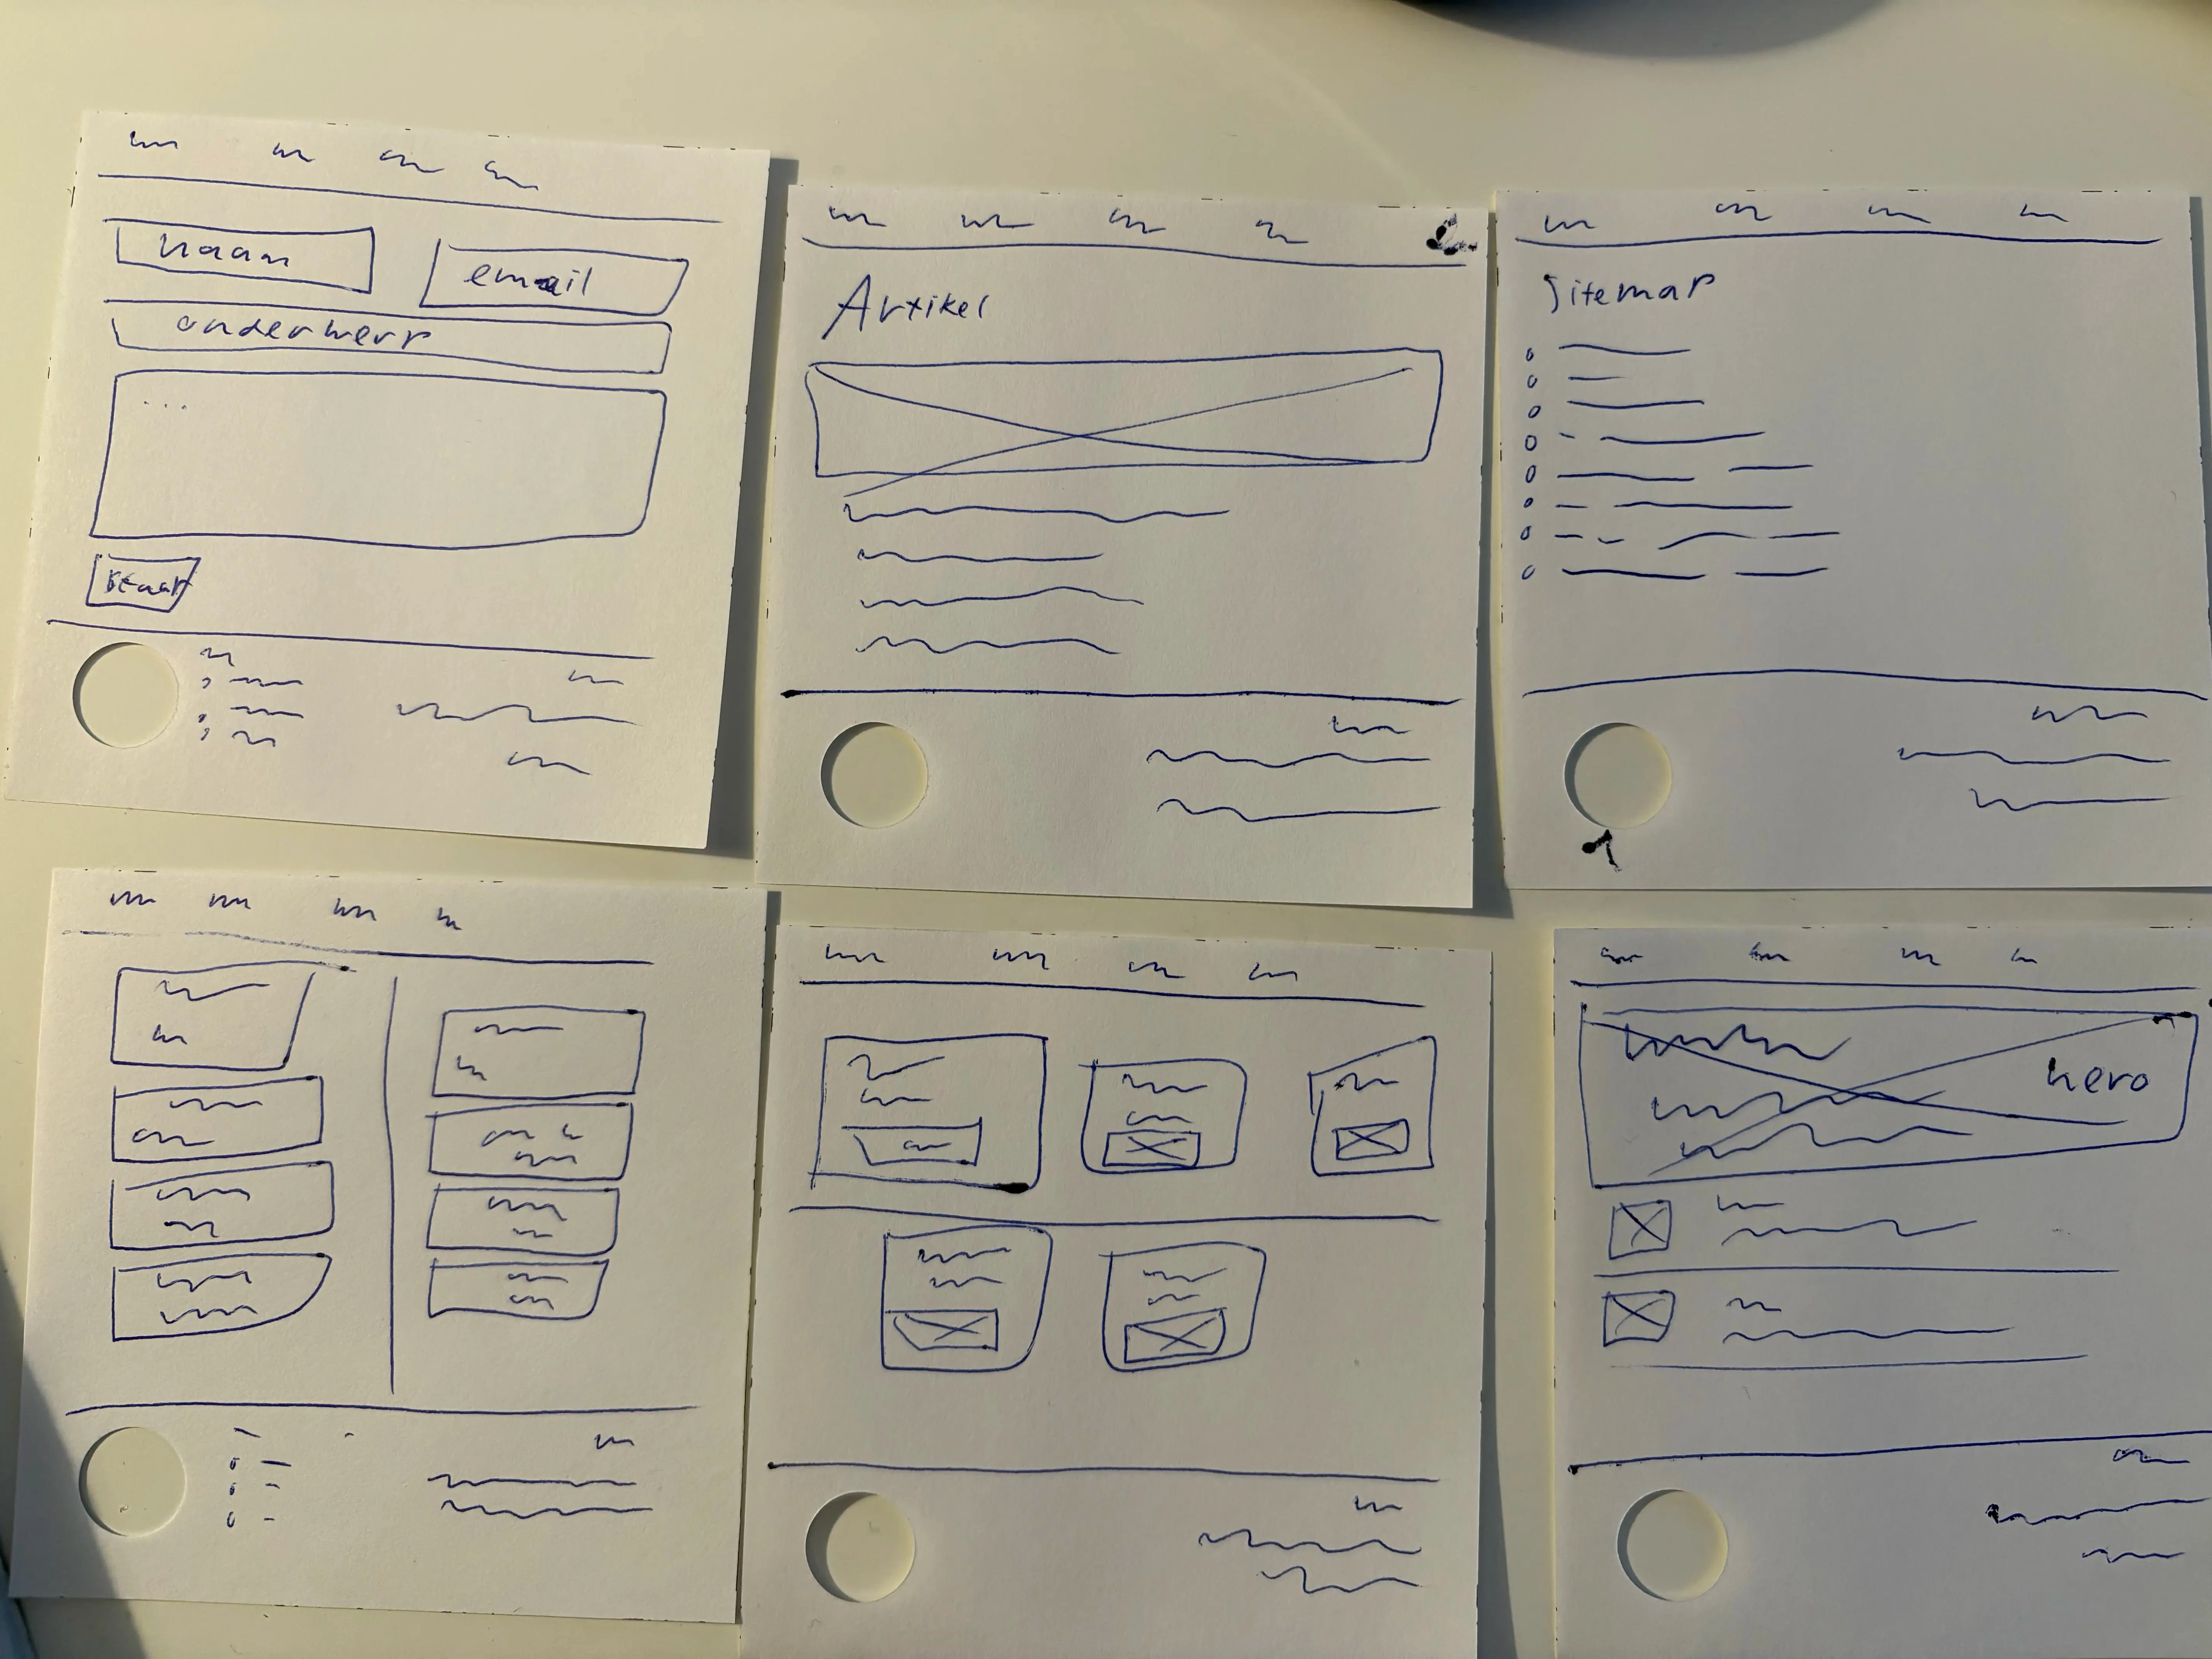 naam
email
onderwerp
...
Artikel
Sitemap
hero